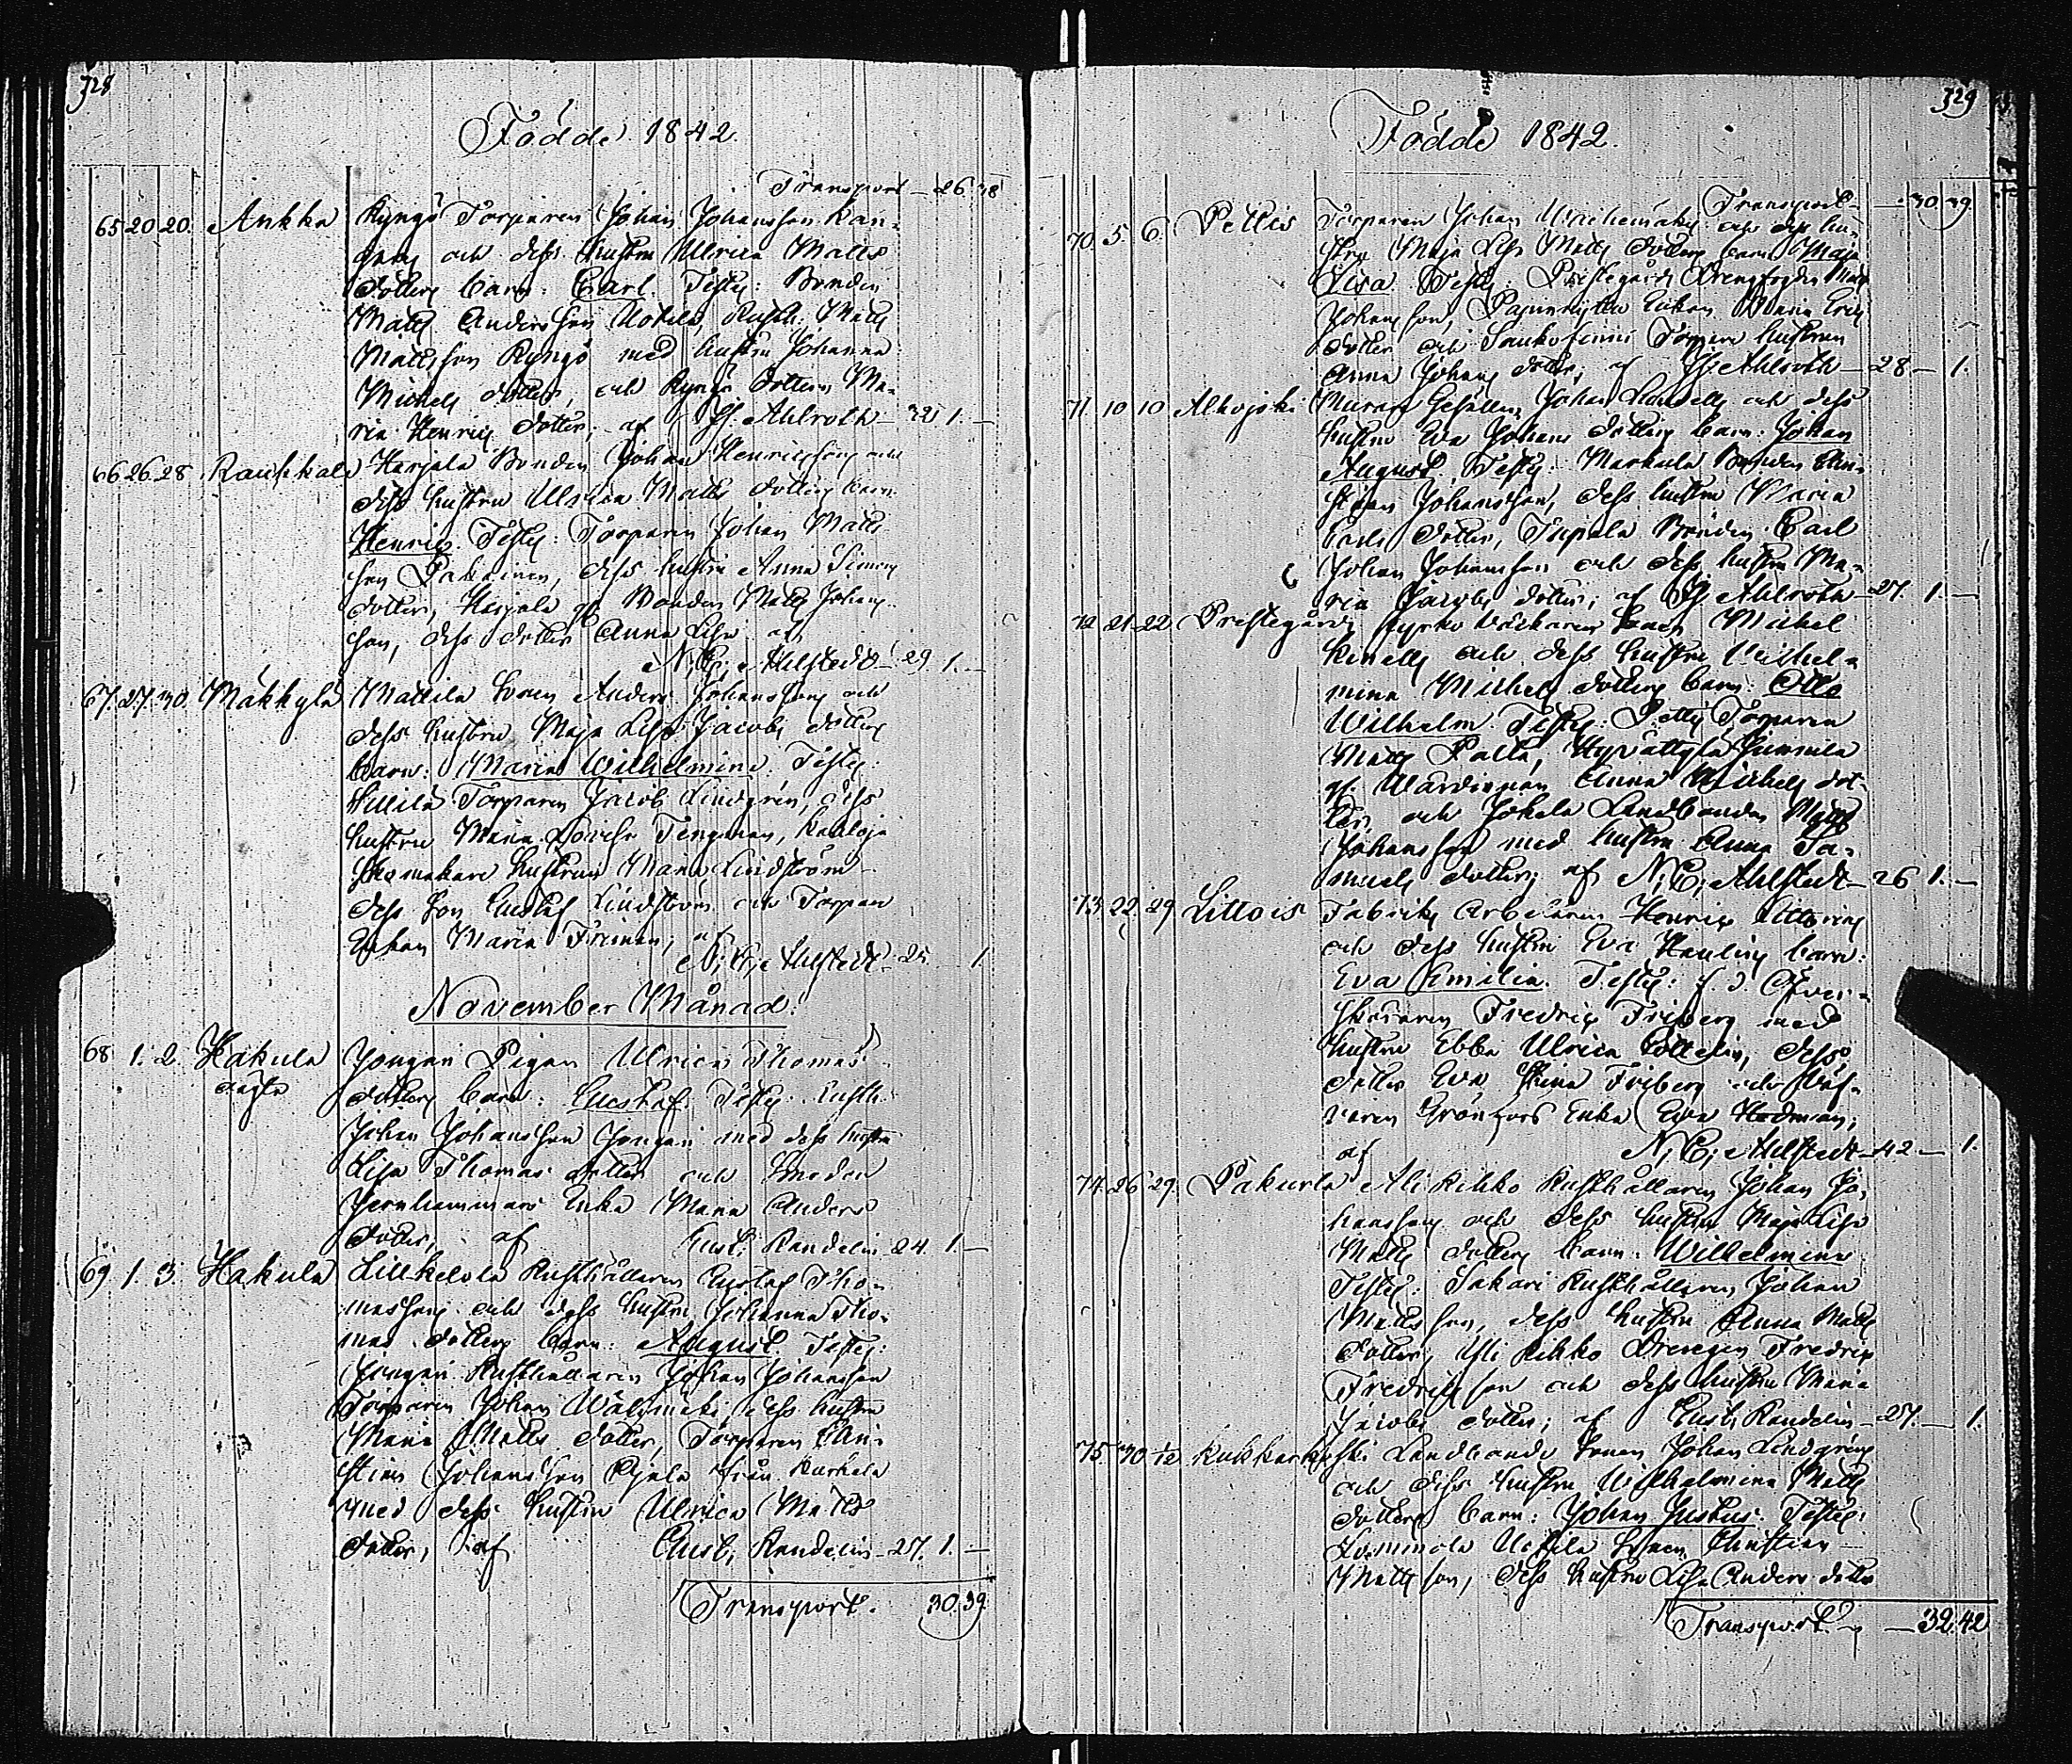 328
Födde 1842.
Transport — 26.38
65 20 20. Ankka Kyngö Torparen Johan Johansson Kan-
och dess hustru Ulrica Matts
dotters barn: Carl. Testes: Bonden
Matts Andersson Uotila, Rusth. Matts
Mattsson Kyngö med hustru Johanna
Michels dotter, och Kyngö dottern Ma-
ria Henrics dotter; af Hj. Ahlroth — 1. —
66 26 28. Raukkala Harjola Bonden Johan Henricsson och
dess hustru Ulrica Matts dotters barn:
Henric. Testes: Torparen Johan Matts
son, dess hustru Anna Simons
dotter, Harjola gl. Bonden Matts Johans
son, dess dotter Anna Lisa af
N. C. Ahlstedt — 29 1. —
67. 27. 30. Mäkkylä Mattila Sonen Anders Johanssons och
dess hustru Maja Lisa Jacobs dotters
barn: Maria Wilhelmina. Testes:
Torparen Jacob Lindgrén, dess
hustru Maria Lovisa Tengman,
Skomakare hustrun Maria Lindström
dess son Gustaf Lindström och Torpare
Enkan Maria Friman; af
N. C. Ahlstedt — 25. 1.
November Månad.
68 1. 2. Hakula Jongari Pigan Ulrica Thomas
oägta dotters barn: Gustaf. Testes: Rusth.
Johan Johansson Jongari med dess hustru
Lisa Thomas dotter och Smeden
Jernhammars Enka Maria Anders
dotter, af Gust. Randelin 24. 1. —
69 1. 3. Hakula Lillkelola Rusthållaren Gustaf Tho-
massons och dess hustru Johanna Tho-
mas dotters barn: August. Testes:
Jongari Rusthållaren Johan Johansson
Torparen Johan Wälimäki dess hustru
Maria Matts dotter, Torparen Chri-
stian Johansson Ojala från Kurkela
med dess hustru Ulrica Matts
dotter, af Gust. Randelin — 27. 1. —
Transport. 30.39
329
Födde 1842.
Transport — 30.39.
70. 5. 6. Peltis Torparen Johan och dess hu-
strus Maja Lisa Matts dotters barn Maja
Lisa. Testes: Prestegårds Drengfogden Matts
Johansson, Enkan Maria Erics
dotter och Torpare hustrun
Anna Johans dotter, af Hj. Ahlroth — 28 — 1.
71 10 10 Alhojoki Murare Gesällen Johan och dess
hustru Eva Johans dotters barn: Johan
August. Testes: Markula Bonden Chri-
stian Johansson, dess hustru Maria
Carls dotter, Bonden Carl
Johan Johansson och dess hustru Ma-
ria Jacobs dotter; af Hj Ahlroth — 27. 1. —
72 21. 22 Prestegård Kyrko Michel
och dess hustru Wilhel-
mina Michels dotters barn: Otto
Wilhelm. Testes: Peltis Torparen
Matts Palta,
gl. Wärdinnan Anna Michels dot-
ter, och Jokela Landbonden Matts
Johansson med hustru Anna Sa-
muels dotter; af N. C. Ahlstedt — 26 1. —
73. 22. 29 Littois Fabriks Arbetaren Henric
och dess hustru Eva barn:
Eva Emilia. Testes: f. d. Öfver-
Fredric Friberg med
hustru Ebba Ulrica dess
dotter Eva Stina Friberg och Väf-
varen Grönfors Enka Eva Hedman;
af N. C. Ahlstedt — 42 — 1.
74. 26 29. Pakurla Ali Kihko Rusthållaren Johan Jo-
hanssons och dess hustru Maja Lisa
Matts dotters barn: Wilhelmina
Testes: Sakari Rusthållaren Johan
Mattsson, dess hustru Anna Matts
dotter, Yli Kihko Drengen Fredric
Fredricsson och dess hustru Maria
Jacobs dotter; af Gust. Randelin — 27. — 1.
75. 30 1/12 Kukkarkoski Landbonde Sonen Johan Lindgréns
och dess hustru Wilhelmina Matts
dotters barn: Johan Justus. Testes:
Uotila Sonen Christian
Mattsson, dess hustru Lisa Anders dotter
Transport. — 32.42